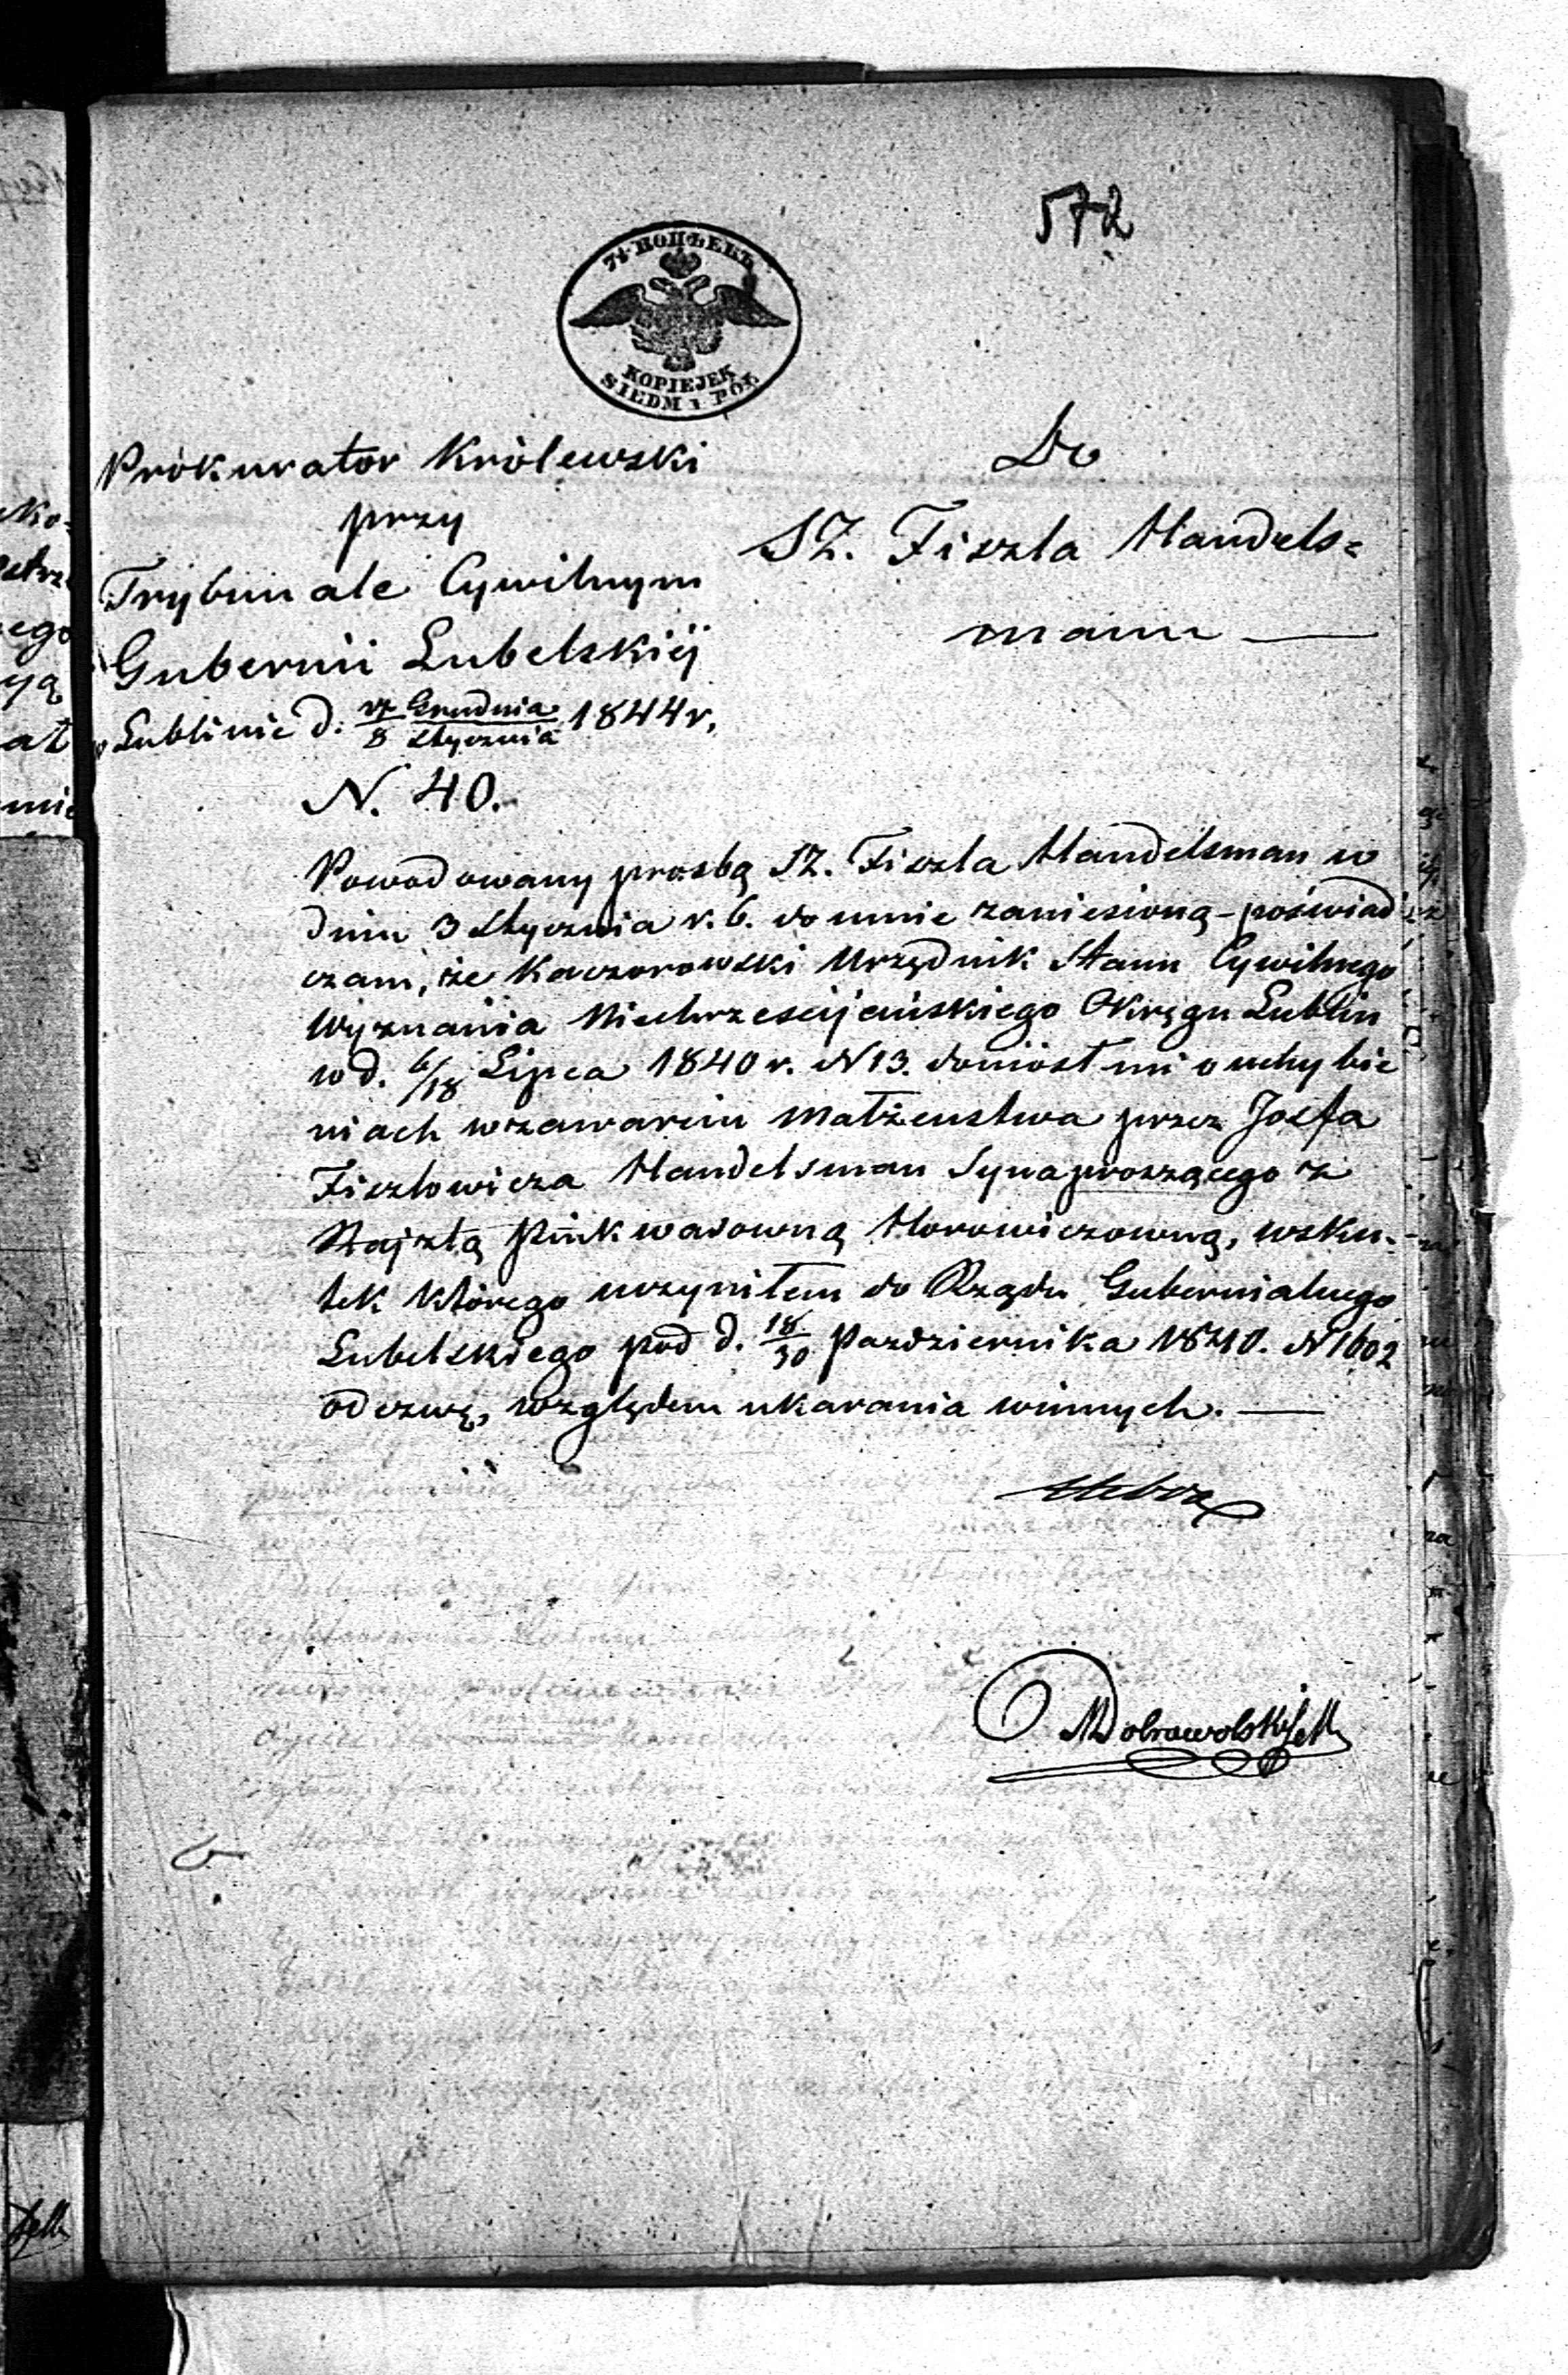 572
7½ КОПѢЕКЪ
KOPIEJEK
SIEDM I PÓŁ
Prokurator Królewski
przy
Trybunale Cywilnym
Gubernii Lubelskiej
w Lublinie d. Grudnia 1844 r.
8 Stycznia
N. 40.
Do
SZ. Fiszla Handels=
mann —
Powodowany prosbą SZ. Fiszla Handelsman w
dniu 3 Stycznia r. b. do mnie zaniesioną – poświad
czam, że Kaczorowski Urzędnik Stanu Cywilnego
Wyznania Niechrzescijańskiego Okręgu Lublin
w d. 6/18 Lipca 1840 r. N 13. doniosł mi o uchybie
niach w zawarciu Małżenstwa przez Josfa
Fiszlowicza Handelsman Syna proszącego z
Rajzlą Pinkwasowną Horowiczowną, wsku-
tek którego uczyniłem do Rządu Gubernialnego
Lubelskiego pod d. 18/30 Pazdziernika 1840. N 1602
odezwę, względem ukarania winnych. —
Dobrowolski